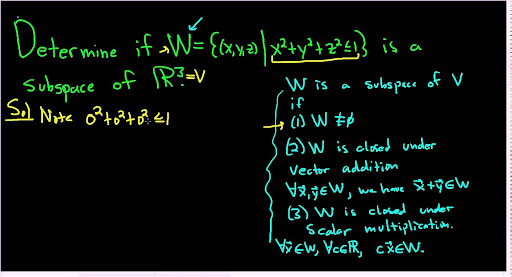 Determine if W = {(x,y,z) | x²+y²+z² ≤ 1} is a
subspace of ℝ³? = V
Sol Note 0²+0²+0² ≤ 1
W is a subspace of V
if
(1) W ≠ ∅
(2) W is closed under
vector addition
∀x⃗,y⃗∈W, we have x⃗+y⃗∈W
(3) W is closed under
scalar multiplication.
∀x⃗∈W, ∀c∈ℝ, cx⃗∈W.